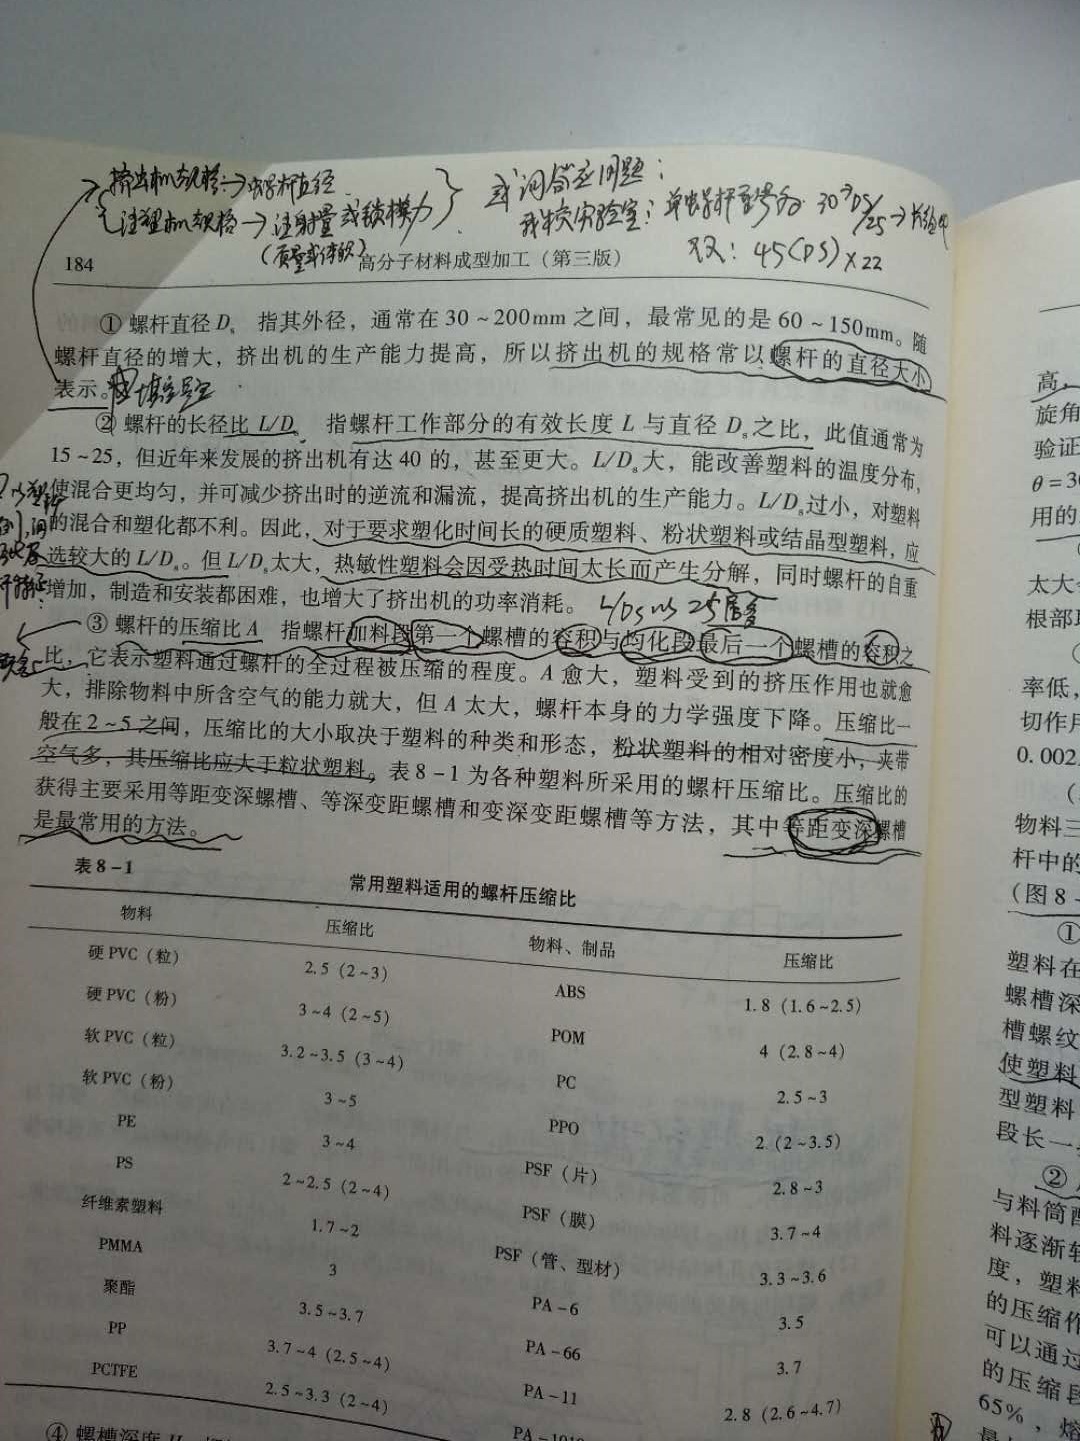 挤出机规格→螺杆直径
注塑机规格→注射量或锁模力
(质量或体积)
或词答应用题：
我校实验室：单螺杆型号为 30
/25→长径比
双：45(DS)×22
184
高分子材料成型加工（第三版）
① 螺杆直径 Ds 指其外径，通常在 30～200mm 之间，最常见的是 60～150mm。随
螺杆直径的增大，挤出机的生产能力提高，所以挤出机的规格常以螺杆的直径大小
表示。填空题
② 螺杆的长径比 L/Ds 指螺杆工作部分的有效长度 L 与直径 Ds 之比，此值通常为
15～25，但近年来发展的挤出机有达 40 的，甚至更大。L/Ds 大，能改善塑料的温度分布，
使混合更均匀，并可减少挤出时的逆流和漏流，提高挤出机的生产能力。L/Ds 过小，对塑料
的混合和塑化都不利。因此，对于要求塑化时间长的硬质塑料、粉状塑料或结晶型塑料，应
选较大的 L/Ds。但 L/Ds 太大，热敏性塑料会因受热时间太长而产生分解，同时螺杆的自重
增加，制造和安装都困难，也增大了挤出机的功率消耗。 L/Ds 以 25居多
③ 螺杆的压缩比 A 指螺杆加料段第一个螺槽的容积与均化段最后一个螺槽的容积之
比，它表示塑料通过螺杆的全过程被压缩的程度。A 愈大，塑料受到的挤压作用也就愈
大，排除物料中所含空气的能力就大，但 A 太大，螺杆本身的力学强度下降。压缩比一
般在 2～5 之间，压缩比的大小取决于塑料的种类和形态，粉状塑料的相对密度小，夹带
空气多，其压缩比应大于粒状塑料。表 8-1 为各种塑料所采用的螺杆压缩比。压缩比的
获得主要采用等距变深螺槽、等深变距螺槽和变深变距螺槽等方法，其中等距变深螺槽
是最常用的方法。
表 8-1
常用塑料适用的螺杆压缩比
物料 压缩比 物料、制品 压缩比
硬 PVC（粒） 2.5（2～3） ABS 1.8（1.6～2.5）
硬 PVC（粉） 3～4（2～5） POM 4（2.8～4）
软 PVC（粒） 3.2～3.5（3～4） PC 2.5～3
软 PVC（粉） 3～5 PPO 2（2～3.5）
PE 3～4 PSF（片） 2.8～3
PS 2～2.5（2～4） PSF（膜） 3.7～4
纤维素塑料 1.7～2 PSF（管、型材） 3.3～3.6
PMMA 3 PA-6 3.5
聚酯 3.5～3.7 PA-66 3.7
PP 3.7～4（2.5～4） PA-11 2.8（2.6～4.7）
PCTFE 2.5～3.3（2～4） PA-1010
④ 螺槽深度 H
高，
旋角
验证
θ=30
用的
太大
根部
率低，
切作用
0.002
物料三
杆中的
（图 8-
①
塑料在
螺槽深
槽螺纹
使塑料
型塑料
段长一
②
与料筒配
料逐渐软
度，塑料
的压缩作
可以通过
的压缩段
65%，熔